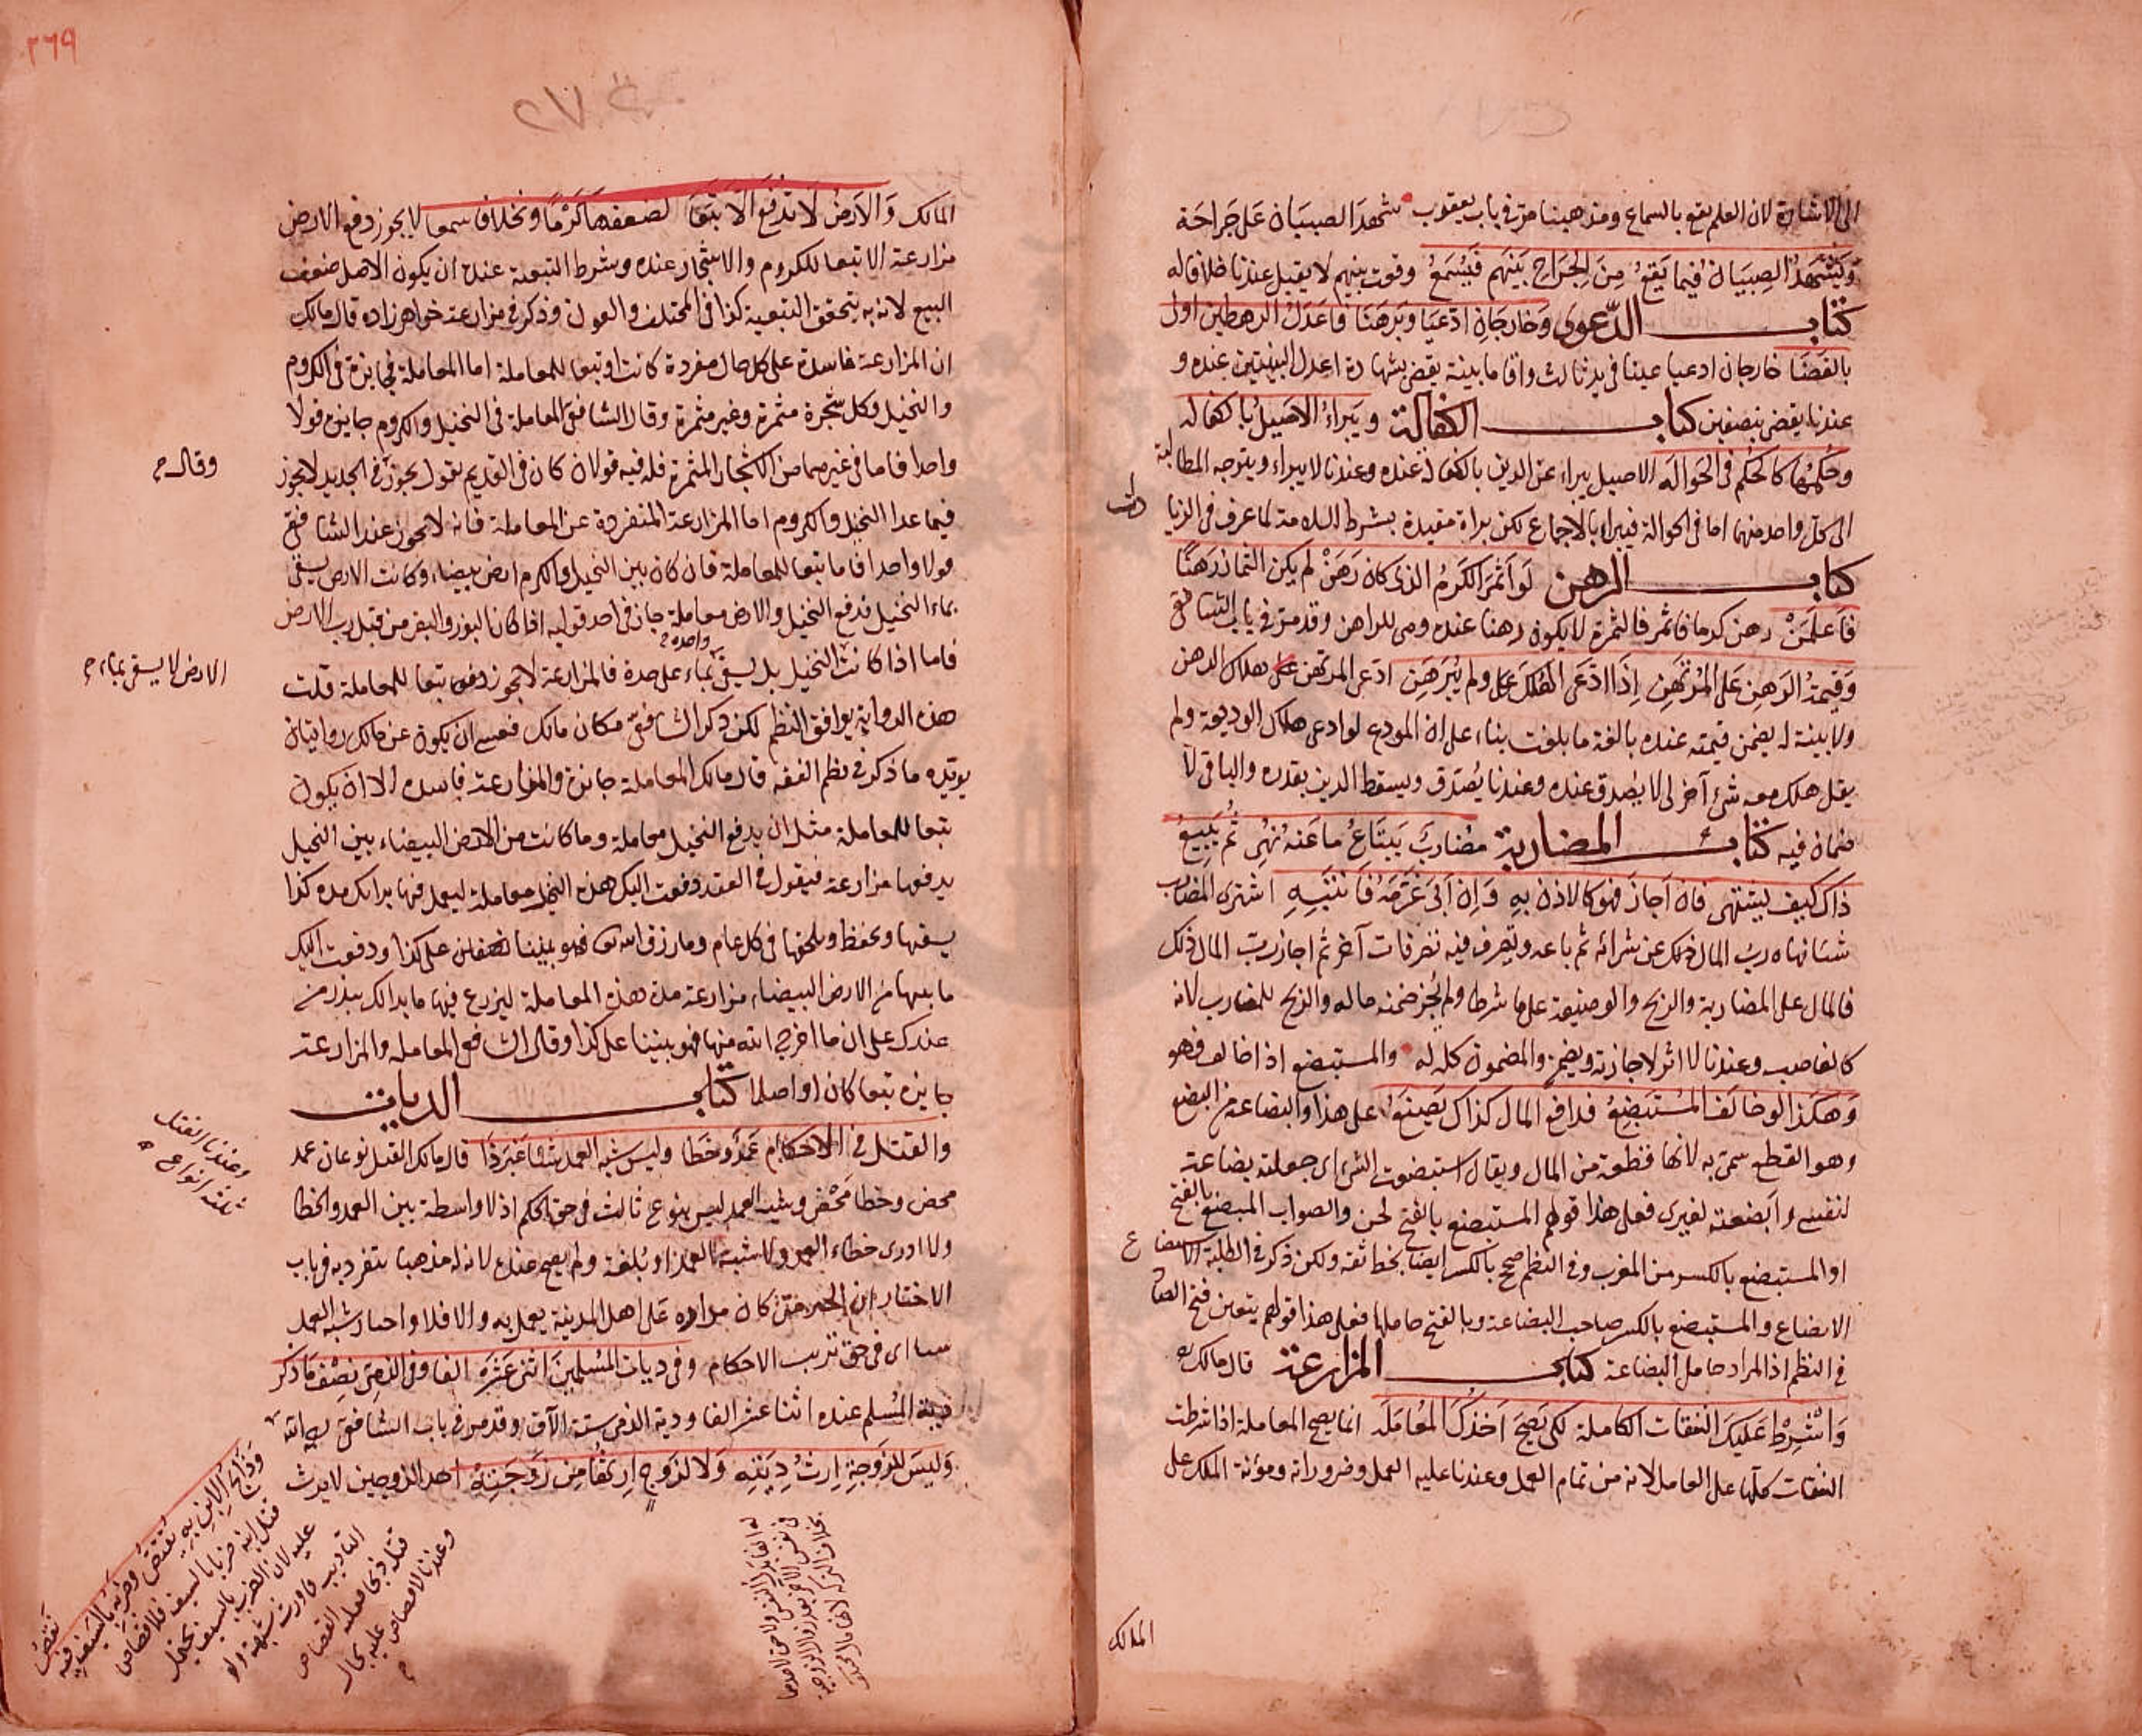 الى الاشارة لان العلم يقع بالسماع ومذهبنا مر في باب يعقوب شهد الصبيان على جراحة
ويشهد الصبيان فيما يقع من الجراح بينهم فيسمع وقوت بينهم لا يقبل عندنا خلافا له
كتاب الدعوى وخارجان ادعيا وبرهنا فاعدل الرهطين اولى
بالقضا خارجان ادعيا عينا في يد ثالث واقاما بينة يقضى بشهادة اعدل البينتين عنده و
عندنا يقضى بنصفين كتاب الكفالة ويبراء الاصيل بالكفاله
وحكمها كالحكم في الحواله الاصيل يبراء عن الدين بالكفالة عنده وعندنا لا يبراء ويتوجه المطالبة
الى كل واحد منهما اما في الحوالة فيبراء بالاجماع لكن براة مقيدة بشرط السلامة لما عرف في الزيا
دات
كتاب الرهن لو اثمر الكرم الذى كان رهن لم يكن الثمار رهنا
فاعلمن رهن كرما فاثمر فالثمرة لا يكون رهنا عنده وهى للراهن وقد مر في باب الشافعى
وقيمة الرهن على المرتهن اذا ادعى الهلك ولم يبرهن ادعى المرتهن هلاك الرهن
ولا بينة له يضمن قيمته عنده بالغة ما بلغت بناء على ان المودع لو ادعى هلاك الوديعة ولم
يقل هلك معه شئ آخر لى لا يصدق عنده وعندنا يصدق ويسقط الدين بقدره والباقى لا
ضمان فيه كتاب المضاربة مضارب يبتاع ما عنه نهى ثم يبيع
ذاك كيف يشتهى فان اجاز فهو كالاذن به وان ابى غرمه فانتبه اشترى المضارب
شيئا نهاه رب المال ذلك عن شرائه ثم باعه وتصرف فيه تصرفات آخر ثم اجاز رب المال ذلك
فالمال على المضاربة والربح والوضيعة على ما شرطا ولم يجز ضمنه ماله والربح للمضارب لانه
كالغاصب وعندنا لا اثر لاجازته ويضمن والمضمون كله له والمستبضع اذا خالف فهو
وهكذا لو خالف المستبضع فدافع المال كذاك يصنع على هذا والبضاعة من البضع
وهو القطع سمى به لانها قطعة من المال ويقال استبضعت الشئ اى جعلته بضاعة
لنفسى وابضعته لغيرى فعلى هذا قولهم المستبضع بالفتح لحن والصواب المبضع بالفتح
او المستبضع بالكسر من المغرب وفي النظم صح بالكسر ايضا بخط ثقة ولكن ذكر في الطلبة الاستبضاع
الابضاع والمستبضع بالكسر صاحب البضاعة وبالفتح حاملها فعلى هذا قولهم يتعين فتح الضاد
في النظم اذ المراد حامل البضاعة كتاب المزارعة قال مالك
واشرط عليك النفقات الكاملة لكى يصح اخذك المعامله انما يصح المعاملة اذا شرطت
النفقات كلها على العامل لانه من تمام العمل وعندنا عليه العمل وضروراته ومؤنة الملك على
المالك
٢٦٩
المالك والارض لا تدفع الا تبعا لضعفها كرما وبخلاف سمعا لا يجوز دفع الارض
مزارعة الا تبعا للكروم والاشجار عنده وشرط التبعية عنده ان يكون الاصل ضعف
البيع لانه به يتحقق التبعية كذا في المختلف والعون وذكر في مزارعة خواهر زاده قال مالك
ان المزارعة فاسدة على كل حال مفردة كانت او تبعا للمعاملة اما المعاملة فجايزة في الكروم
والنخيل وكل شجرة مثمرة وغير مثمرة وقال الشافعى المعاملة في النخيل والكروم جايزة قولا
واحدا فاما في غيرهما من الاشجار المثمرة فله فيه قولان كان في القديم يقول يجوز وفي الجديد لا يجوز
وقال
فيما عدا النخيل والكروم اما المزارعة المنفردة عن المعاملة فانه لا يجوز عند الشافعى
قولا واحدا فاما تبعا للمعاملة فان كان بين النخيل والكرم ارض بيضاء وكانت الارض يسقى
بماء النخيل فدفع النخيل والارض معاملة جاز في احد قوليه اذا كان البذر والبقر من قبل رب الارض
واحدة
فاما اذا كانت النخيل بل يسقى بماء على حدة فالمزارعة لا يجوز دفعها تبعا للمعاملة قلت
الارض لا يسقى بماء
هذه الرواية يوافق النظم لكن ذكر الشافعى مكان مالك فعسى ان يكون عن مالك روايتان
يويده ما ذكر في نظم الفقه قال مالك المعاملة جايزة والمزارعة فاسده الا ان يكون
تبعا للمعاملة مثل ان يدفع النخيل معاملة وما كانت من الارض البيضاء بين النخيل
يدفعها مزارعة فيقول في العقد دفعت اليك هذه النخيل معاملة ليعمل فيها بدالك مدة كذا
يسقيها ويحفظ ويلحقها في كل عام وما رزق الله تعالى فهو بيننا نصفان على كذا ودفعت اليك
ما بينها من الارض البيضاء مزارعة مدة هذه المعاملة ليزرع فيها ما بدا لك ببذر من
عندك على ان ما اخرج الله منها فهو بيننا على كذا وقال الشافعى المعاملة والمزارعة
جايزة تبعا كان او اصلا كتاب الديات
والقتل في الاحكام عمد وخطا وليس شبه العمد شيئا غير ذا قال مالك القتل نوعان عمد
وعندنا القتل
ثلثة انواع
محض وخطا محض وشبه العمد ليس بنوع ثالث في حق الحكم اذ لا واسطة بين العمد والخطا
ولا ادرى خطاء العمد ولا شبه العمد او بلغه ولم يصح عنده لانه له مذهبا يتفرد به في باب
الاختار ان الخبر متى كان مداره على اهل المدينة يعمل به والا فلا واخبار شبه العمد
اى في حق ترتيب الاحكام وفي ديات المسلمين اثنى عشرة الفا وفي الذمى نصف ما ذكر
دية المسلم عنده اثنا عشر الفا ودية الذمى ستة الآف وقد مر في باب الشافعى رحمه الله
وليس للزوجة ارث ديته ولا لزوج ارثها من زوجته احد الزوجين لا يرث
وذابح الابن به يقتص وضربه بالسيف فيه نقص
قتل ابنه ضربا بالسيف فلا قصاص
عليه لان الضرب بالسيف يحتمل
التاديب فاورث شبهة ولو
قتله ذبحا فعليه القصاص
وعندنا لا قصاص عليه بحال